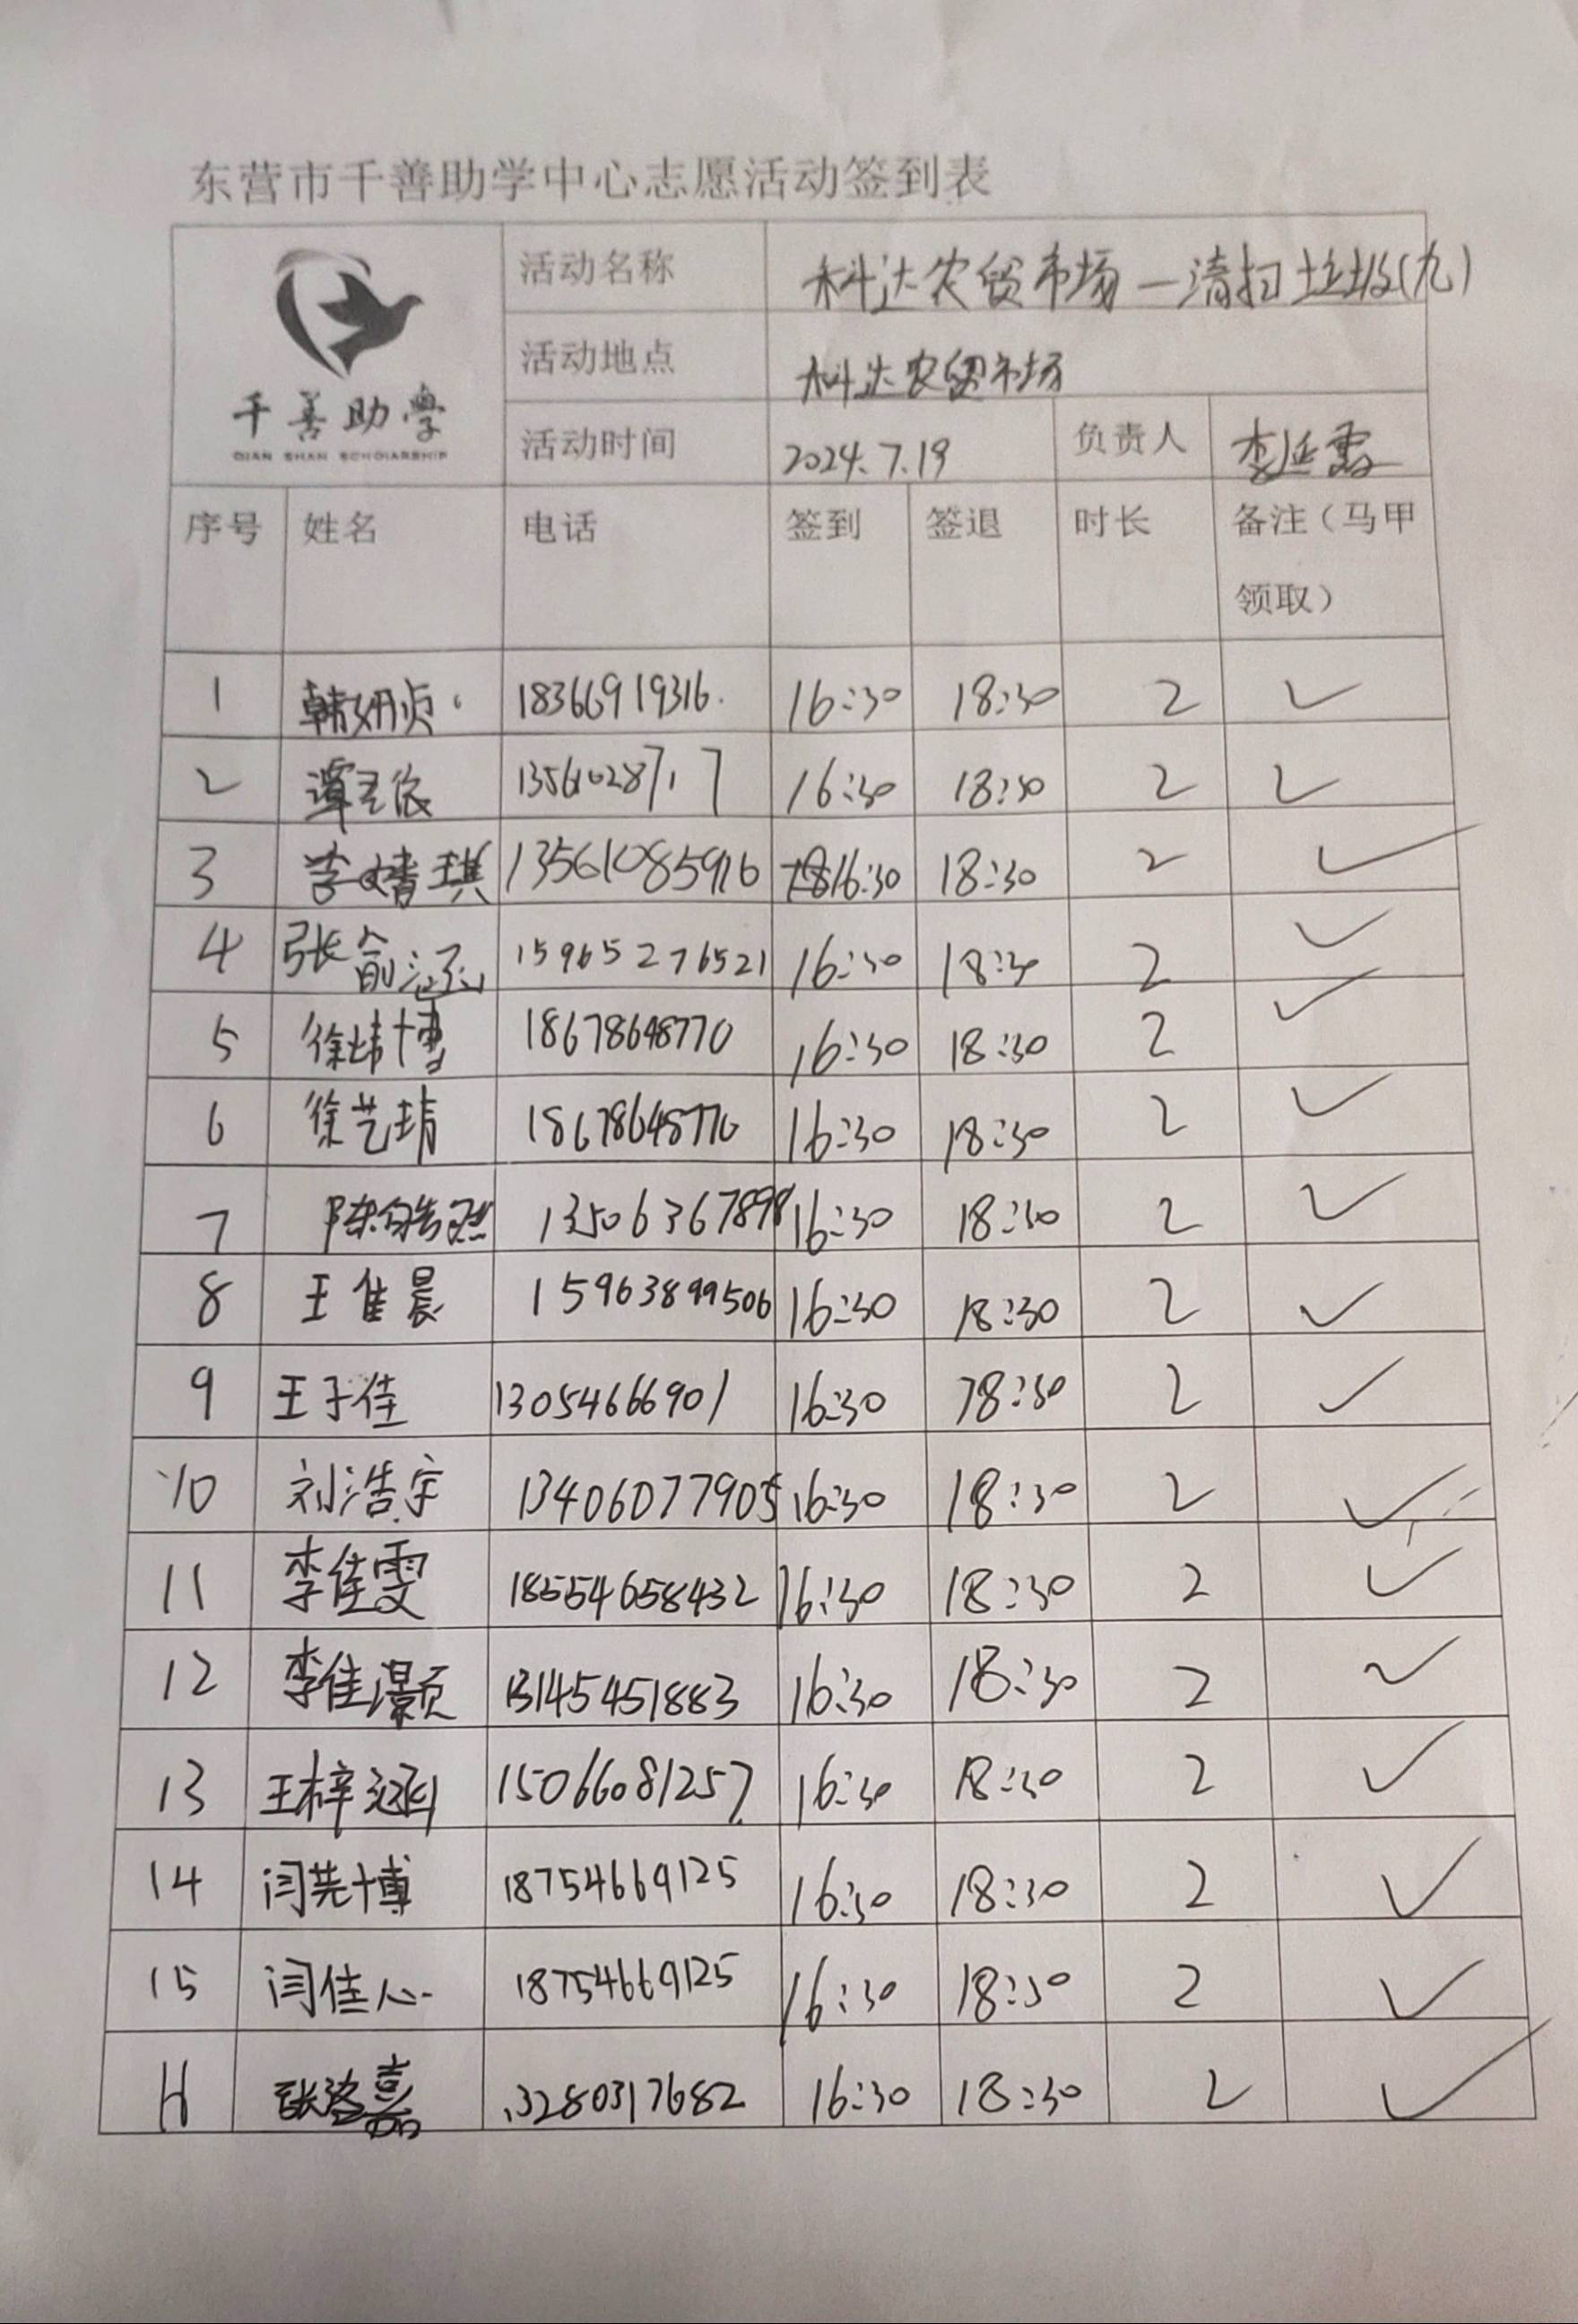 东营市千善助学中心志愿活动签到表
千善助学
QIAN SHAN SCHOLARSHIP
活动名称 科达农贸市场—清扫垃圾(九)
活动地点 科达农贸市场
活动时间 2024.7.19 负责人 李延霞
序号 姓名 电话 签到 签退 时长 备注（马甲
领取）
1 韩妍贞 18366919316 16:30 18:30 2 ✓
2 13561028717 16:30 18:30 2 ✓
3 李婧琪 13561085916 16:30 18:30 2 ✓
4 张俞涵 15965276521 16:30 18:30 2 ✓
5 徐炜博 18678648770 16:30 18:30 2 ✓
6 徐艺琦 18678648770 16:30 18:30 2 ✓
7 16:30 18:30 2 ✓
8 王隹晨 15963899506 16:30 18:30 2 ✓
9 王子佳 13054666901 16:30 18:30 2 ✓
10 刘浩宇 13406077905 16:30 18:30 2 ✓
11 李佳雯 18554658432 16:30 18:30 2 ✓
12 李佳灏 13145451883 16:30 18:30 2 ✓
13 王梓涵 15066081257 16:30 18:30 2 ✓
14 闫芫博 18754669125 16:30 18:30 2 ✓
15 闫佳心 18754669125 16:30 18:30 2 ✓
16 张洛嘉 13280317682 16:30 18:30 2 ✓